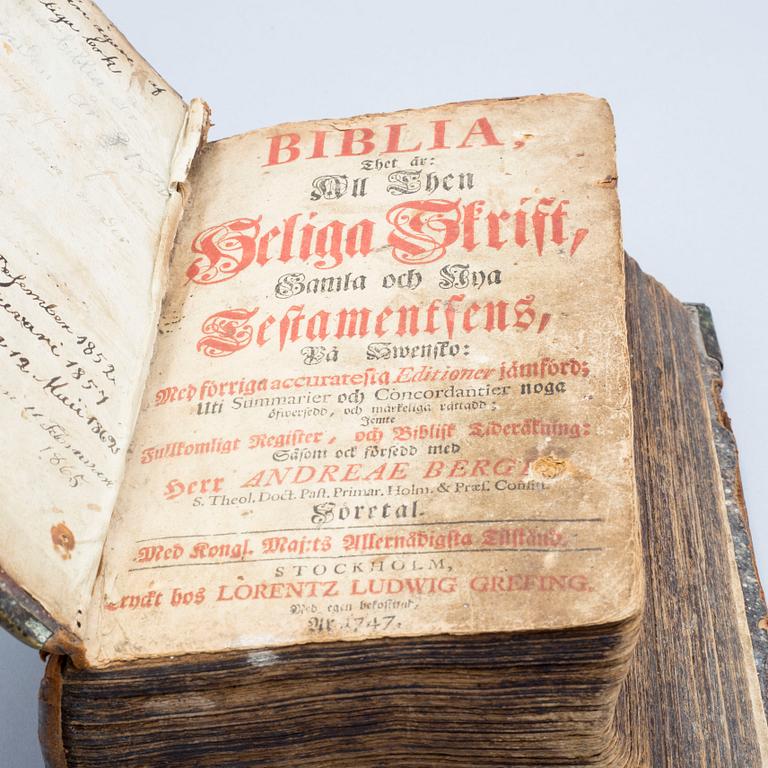 BIBLIA,
Thet är:
All Then
Heliga Skrift,
Gamla och Nya
Testamentsens,
På Swensko:
Med förriga accuratesta Editioner jämförd;
Uti Summarier och Concordantier noga
öfwersedd, och märkeliga rättadd;
Jemte
Fullkomligt Register, och Biblisk Tideräkning:
Såsom ock försedd med
Herr ANDREAE BERGI
S. Theol. Doct. Past. Primar. Holm. & Præs. Consist.
Företal.
Med Kongl. Maj:ts Allernådigsta Tilstånd.
STOCKHOLM,
Tryckt hos LORENTZ LUDWIG GREFING,
Med egen bekostnad,
År 1747.
of
bok
Desember 1852
1857
12 Maii
1865